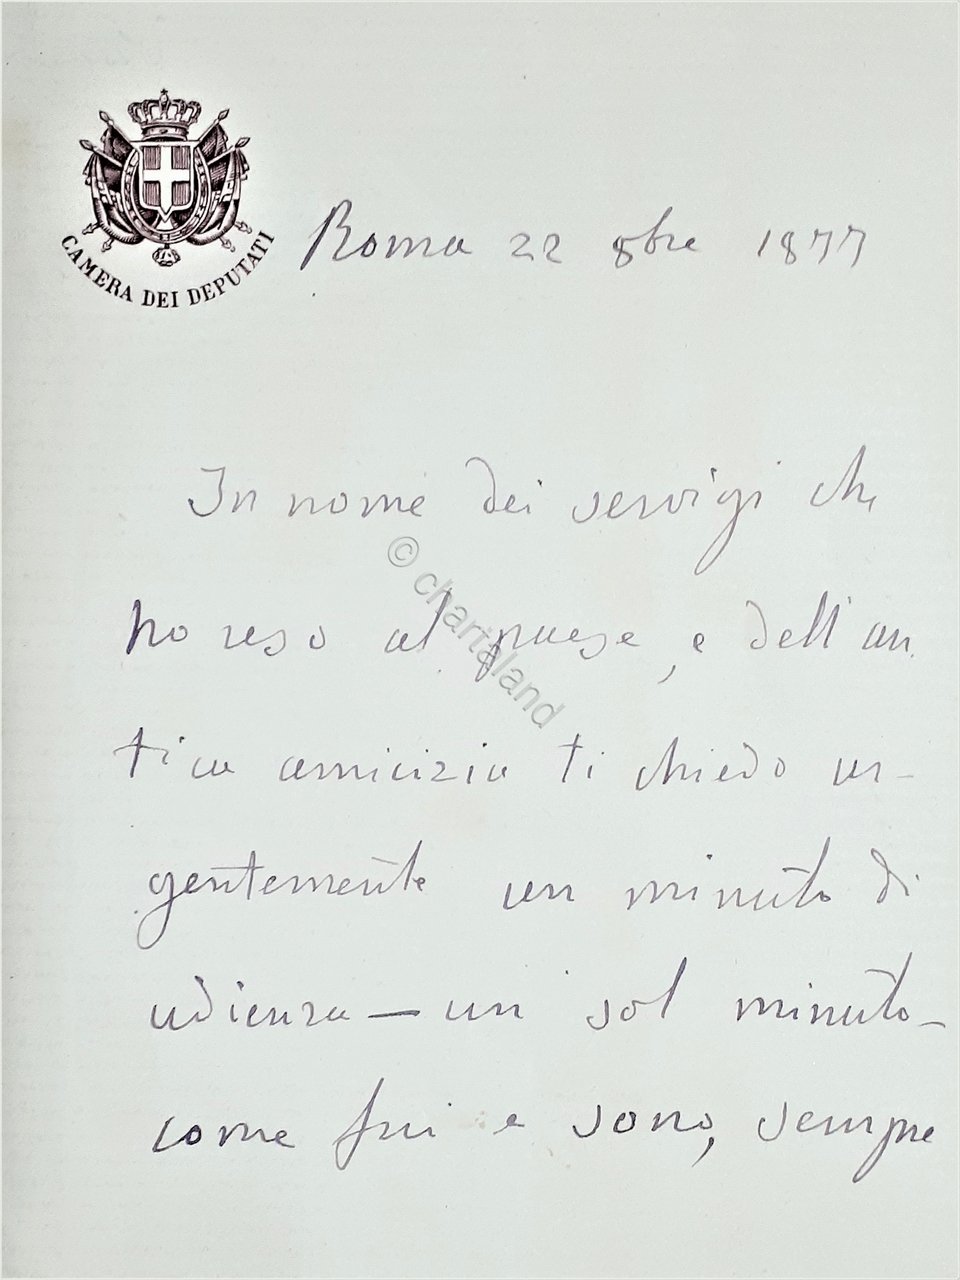 CAMERA DEI DEPUTATI
Roma 22 8bre 1877
In nome dei servigi che
ho reso al paese, e dell'an
tica amicizia ti chiedo ur-
gentemente un minuto di
udienza — un sol minuto –
come fui e sono, sempre
© chartaland